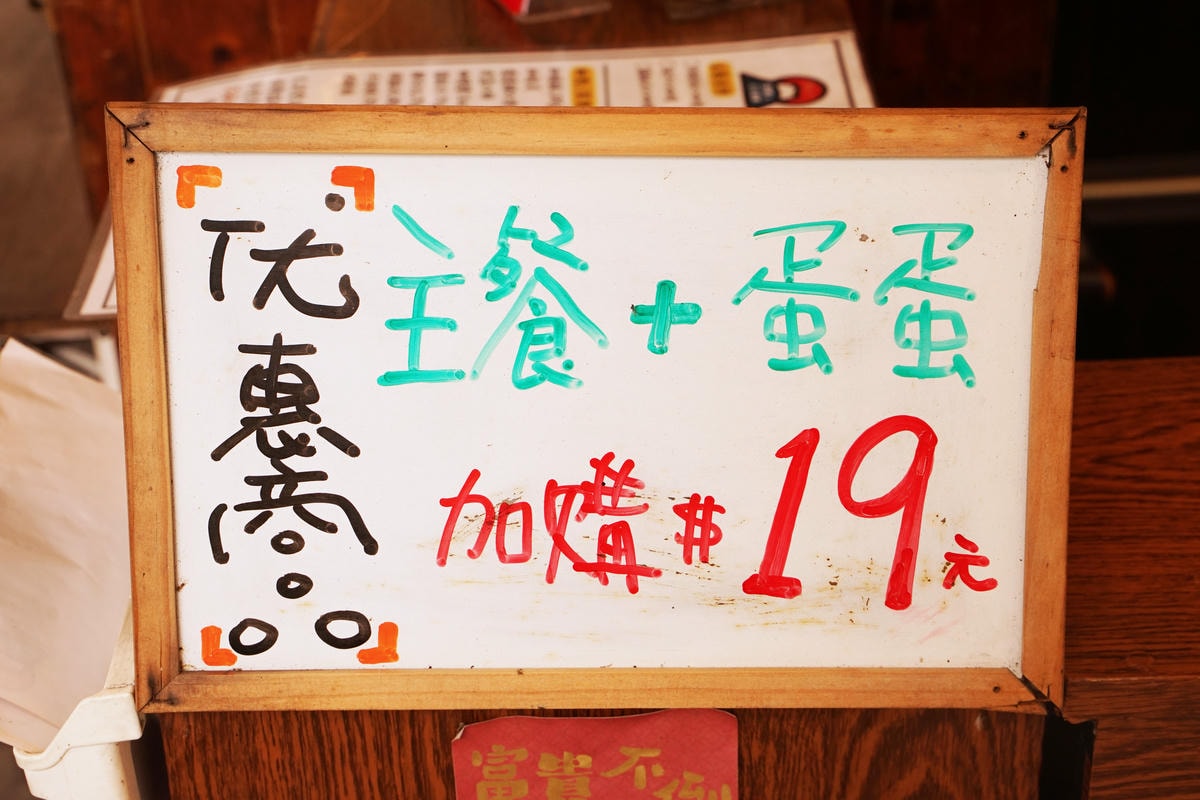 优惠商品
主餐+蛋蛋
加購$19元
富貴不倒